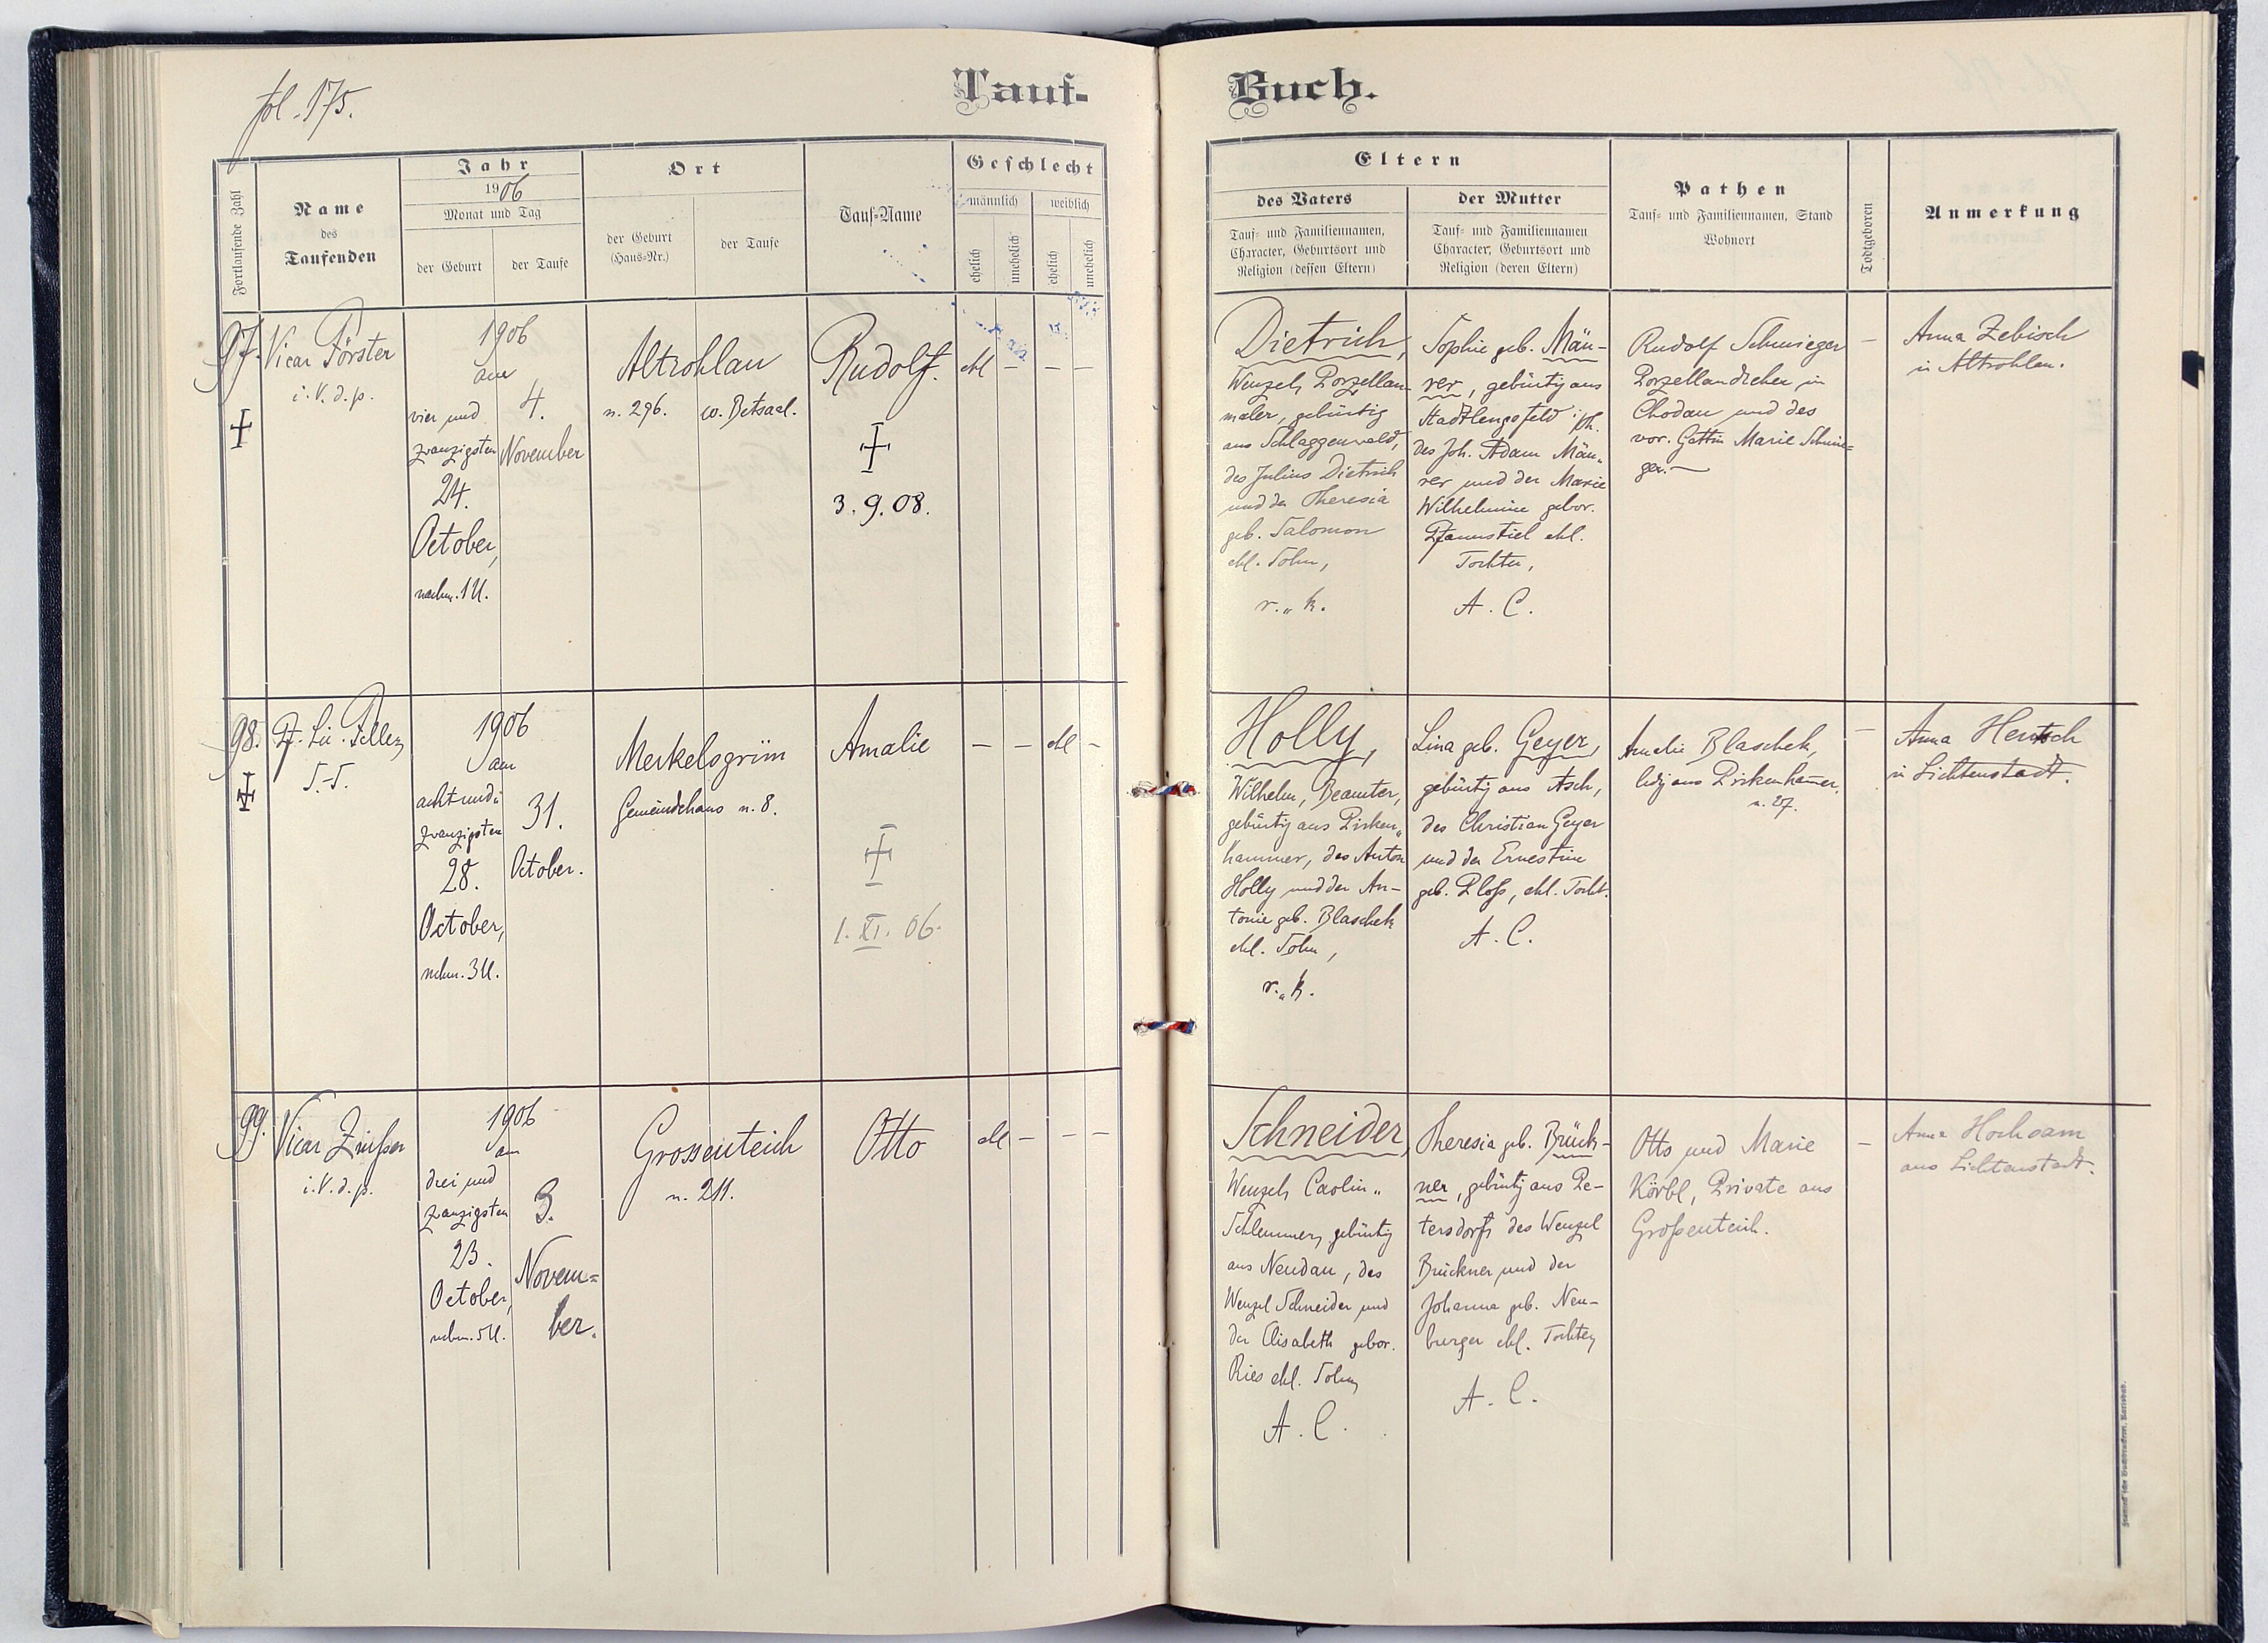 fol. 175.
Tauf-
Fortlaufende Zahl
Name
des
Taufenden
Jahr
1906
Monat und Tag
der Geburt
der Taufe
Ort
der Geburt
(Haus-Nr.)
der Taufe
Tauf-Name
Geschlecht
männlich
weiblich
ehelich
unehelich
ehelich
unehelich
97.
Vicar Förster
i. V. d. p.
1906
am
vier und
zwanzigsten
24.
October,
nachm. 1 U.
4.
November
Altrohlau
n. 296.
w. Betsaal.
Rudolf.
3. 9. 08.
ehl
–
–
–
98.
1906
am
acht und
zwanzigsten
28.
October,
nchm. 3 U.
31.
October.
Merkelsgrün
Gemeindehaus n. 8.
Amalie
1. XI. 06.
–
–
ehl
–
99.
Vicar
i. V. d. p.
1906
am
drei und
zwanzigsten
23.
October,
nchm. 5 U.
3.
Novem=
ber.
Grossenteich
n. 211.
Otto
ehl
–
–
–
Buch.
Eltern
des Vaters
Tauf- und Familiennamen,
Character, Geburtsort und
Religion (dessen Eltern)
der Mutter
Tauf- und Familiennamen
Character, Geburtsort und
Religion (deren Eltern)
Pathen
Tauf- und Familiennamen, Stand
Wohnort
Todtgeboren
Anmerkung
Dietrich,
Wenzel, Porzellan-
maler, gebürtig
aus Schlaggenwald,
des Julius Dietrich
und der Theresia
geb. Salomon
ehl. Sohn,
r. „ k.
Sophie geb. Män-
rer, gebürtig aus
Stadtlengsfeld
des Joh. Adam Män-
rer und der Marie
Wilhelmine gebor.
Pfannstiel ehl.
Tochter,
A. C.
Rudolf Schwieger
Porzellandreher in
Chodau und des
vor. Gattin Marie Schwie=
ger.
–
Anna Zebisch
in Altrohlau.
Holly,
Wilhelm, Beamter,
gebürtig aus Pirken„
hammer, des Anton
Holly und der An-
tonie geb. Blaschek
ehl. Sohn,
r. „ k.
Lina geb. Geyer,
gebürtig aus Asch,
des Christian Geyer
und der Ernestine
geb. Ploß, ehl. Tocht.
A. C.
Amalie Blaschek,
ledig aus Pirkenham̄er,
n. 27.
–
Anna Hentsch
in Lichtenstadt.
Schneider,
Wenzel, Caolin„
Schlemmer, gebürtig
aus Neudau, des
Wenzel Schneider und
der Elisabeth gebor.
Ries ehl. Sohn,
A. C.
Theresia geb. Brück-
ner, gebürtig aus Pe-
tersdorf, des Wenzel
Brückner und der
Johanna geb. Neu-
burger ehl. Tochter,
A. C.
Otto und Marie
Körbl, Private aus
Großenteich.
–
Anna
aus Lichtenstadt.